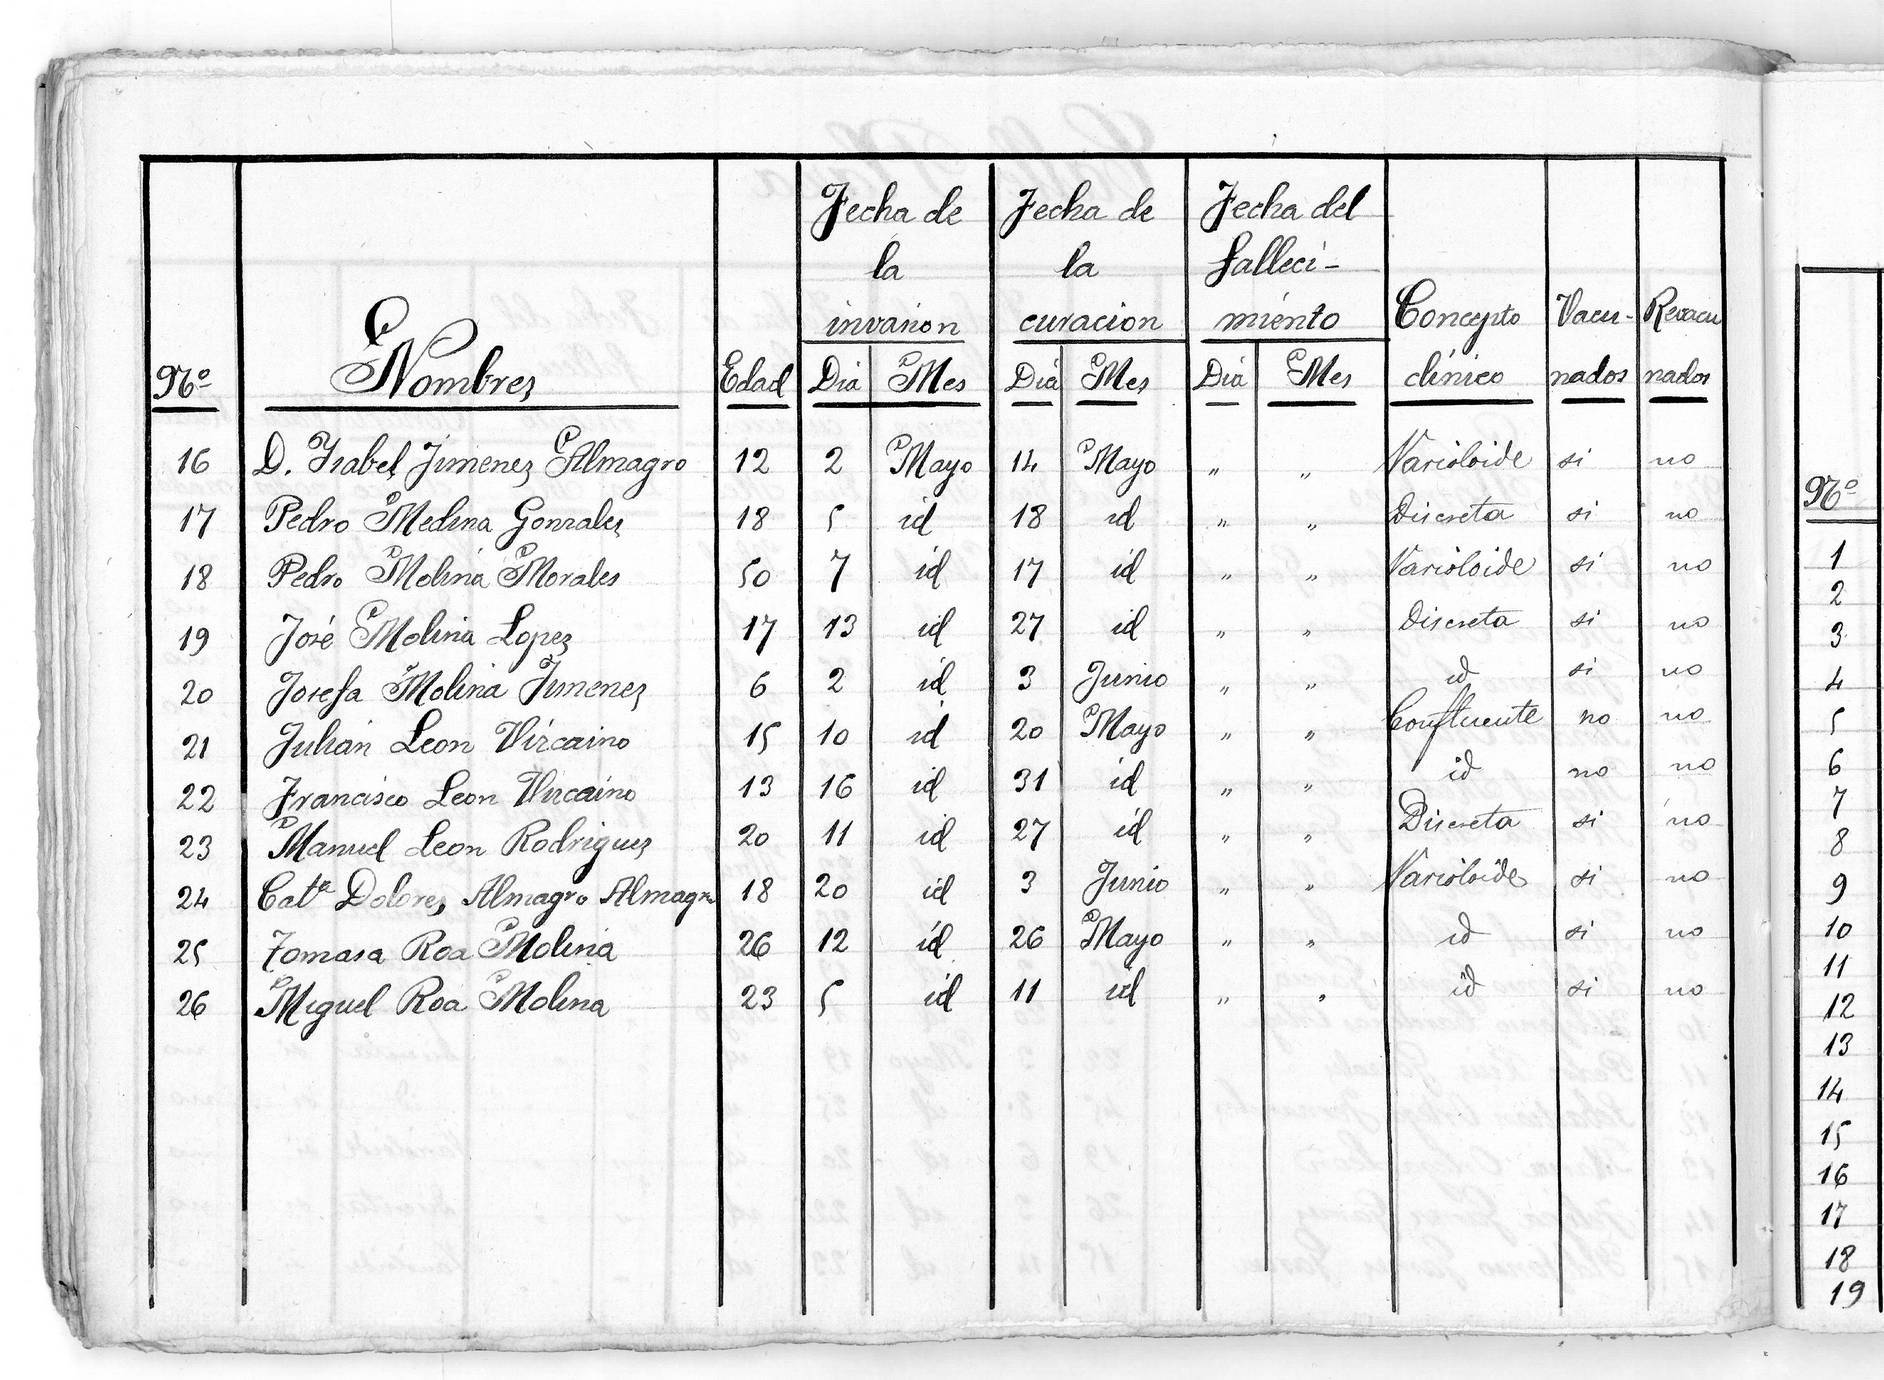 Nº Nombres Edad Fecha de la invasion Fecha de la curacion Fecha del falleci-miento Concepto clínico Vacu-nados Revacu nados
Dia Mes Dia Mes Dia Mes
16 D. Isabel Jimenez Almagro 12 2 Mayo 14 Mayo " " Varioloide si no
17 Pedro Medina Gonzalez 18 5 id 18 id " " Discreta si no
18 Pedro Molina Morales 50 7 id 17 id " " Varioloide si no
19 José Molina Lopez 17 13 id 27 id " " Discreta si no
20 Josefa Molina Jimenez 6 2 id 3 Junio " " id si no
21 Julian Leon Vizcaino 15 10 id 20 Mayo " " Confluente no no
22 Francisco Leon Vizcaino 13 16 id 31 id " " id no no
23 Manuel Leon Rodriguez 20 11 id 27 id " " Discreta si no
24 Catª Dolores Almagro Almagro 18 20 id 3 Junio " " Varioloide si no
25 Tomasa Roa Molina 26 12 id 26 Mayo " " id si no
26 Miguel Roa Molina 23 5 id 11 id " " id si no
Nº
1
2
3
4
5
6
7
8
9
10
11
12
13
14
15
16
17
18
19